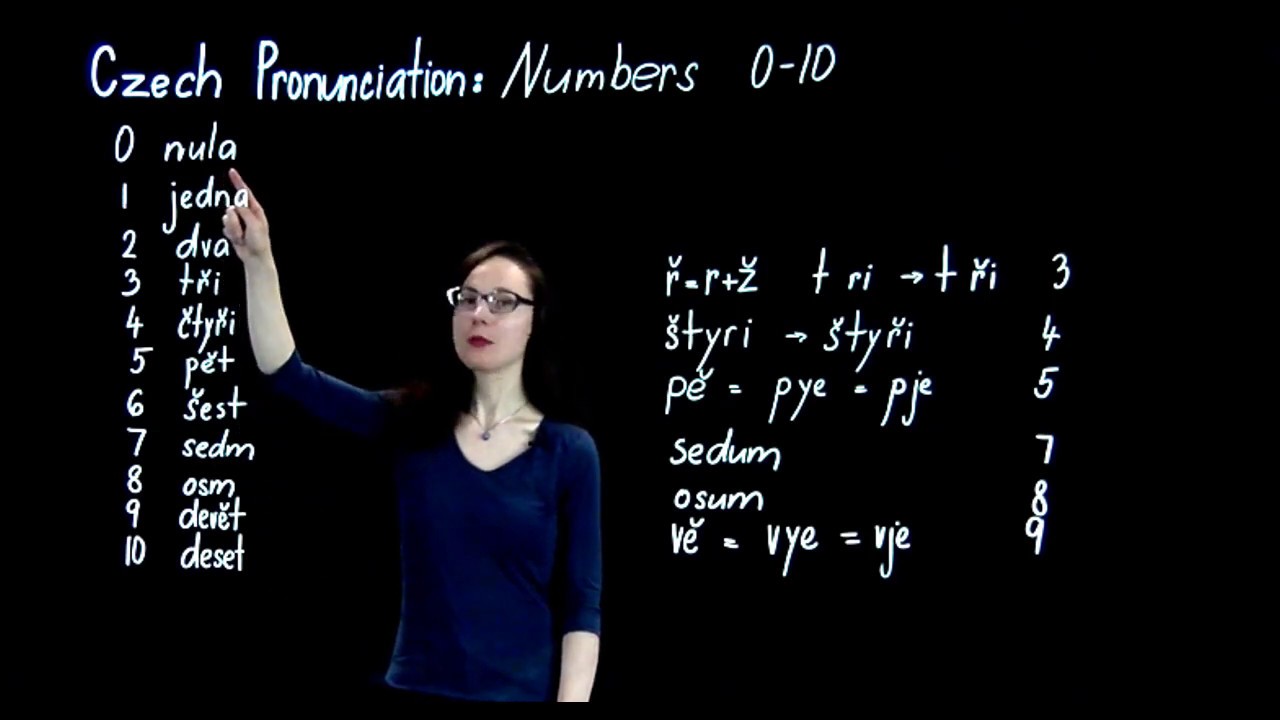 Czech Pronunciation: Numbers 0-10
0 nula
1 jedna
2 dva
3 tři
4 čtyři
5 pět
6 šest
7 sedm
8 osm
9 devět
10 deset
ř=r+ž t ri → t ři 3
štyri → štyři 4
pě = pye = pje 5
sedum 7
osum 8
vě = vye = vje 9